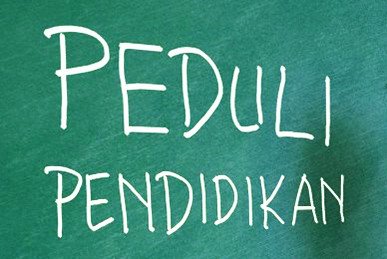 PEDULI
PENDIDIKAN